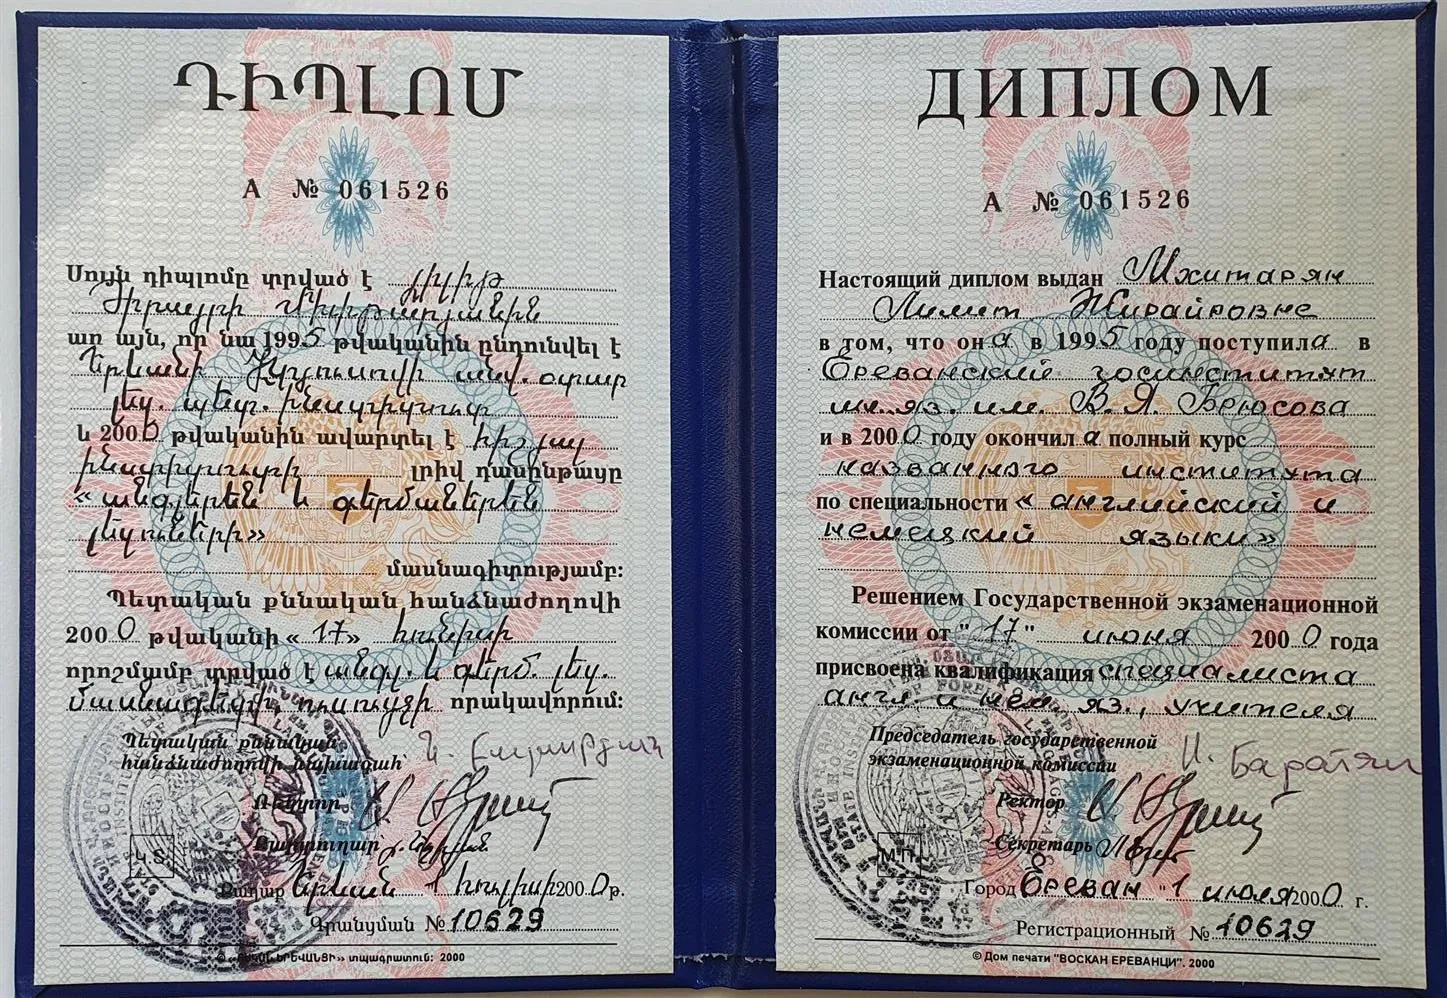 ԴԻՊԼՈՄ
А № 061526
Սույն դիպլոմը տրված է Լիլիթ
Ժիրայրի Մխիթարյանին
առ այն, որ նա 1995 թվականին ընդունվել է
Երևանի Վ.Բրյուսովի անվ. օտար
լեզ. պետ. ինստիտուտ
և 2000 թվականին ավարտել է նշված
ինստիտուտի լրիվ դասընթացը
«անգլերեն և գերմաներեն
լեզուների»
մասնագիտությամբ:
Պետական քննական հանձնաժողովի
2000 թվականի «17» հունիսի
որոշմամբ տրված է անգլ. և գերմ. լեզ.
մասնագետի, ուսուցչի որակավորում:
Պետական քննական
հանձնաժողովի նախագահ
Ռեկտոր
Քարտուղար
Կ.Տ.
Քաղաք Երևան 1 հուլիսի 2000 թ.
Գրանցման № 10629
ԵՐԵՎԱՆՑԻ» տպագրատուն: 2000
ДИПЛОМ
А № 061526
Настоящий диплом выдан Мхитарян
Лилит Жирайровне
в том, что она в 1995 году поступила в
Ереванский госинститут
ин.яз. им. В.Я. Брюсова
и в 2000 году окончила полный курс
названного института
по специальности «английский и
немецкий языки»
Решением Государственной экзаменационной
комиссии от "17" июня 2000 года
присвоена квалификация специалиста
англ и нем яз., учителя
Председатель государственной
экзаменационной комиссии
Ректор
Секретарь
М.П.
Город Ереван "1 июля 2000 г.
Регистрационный № 10629
© Дом печати "ВОСКАН ЕРЕВАНЦИ". 2000